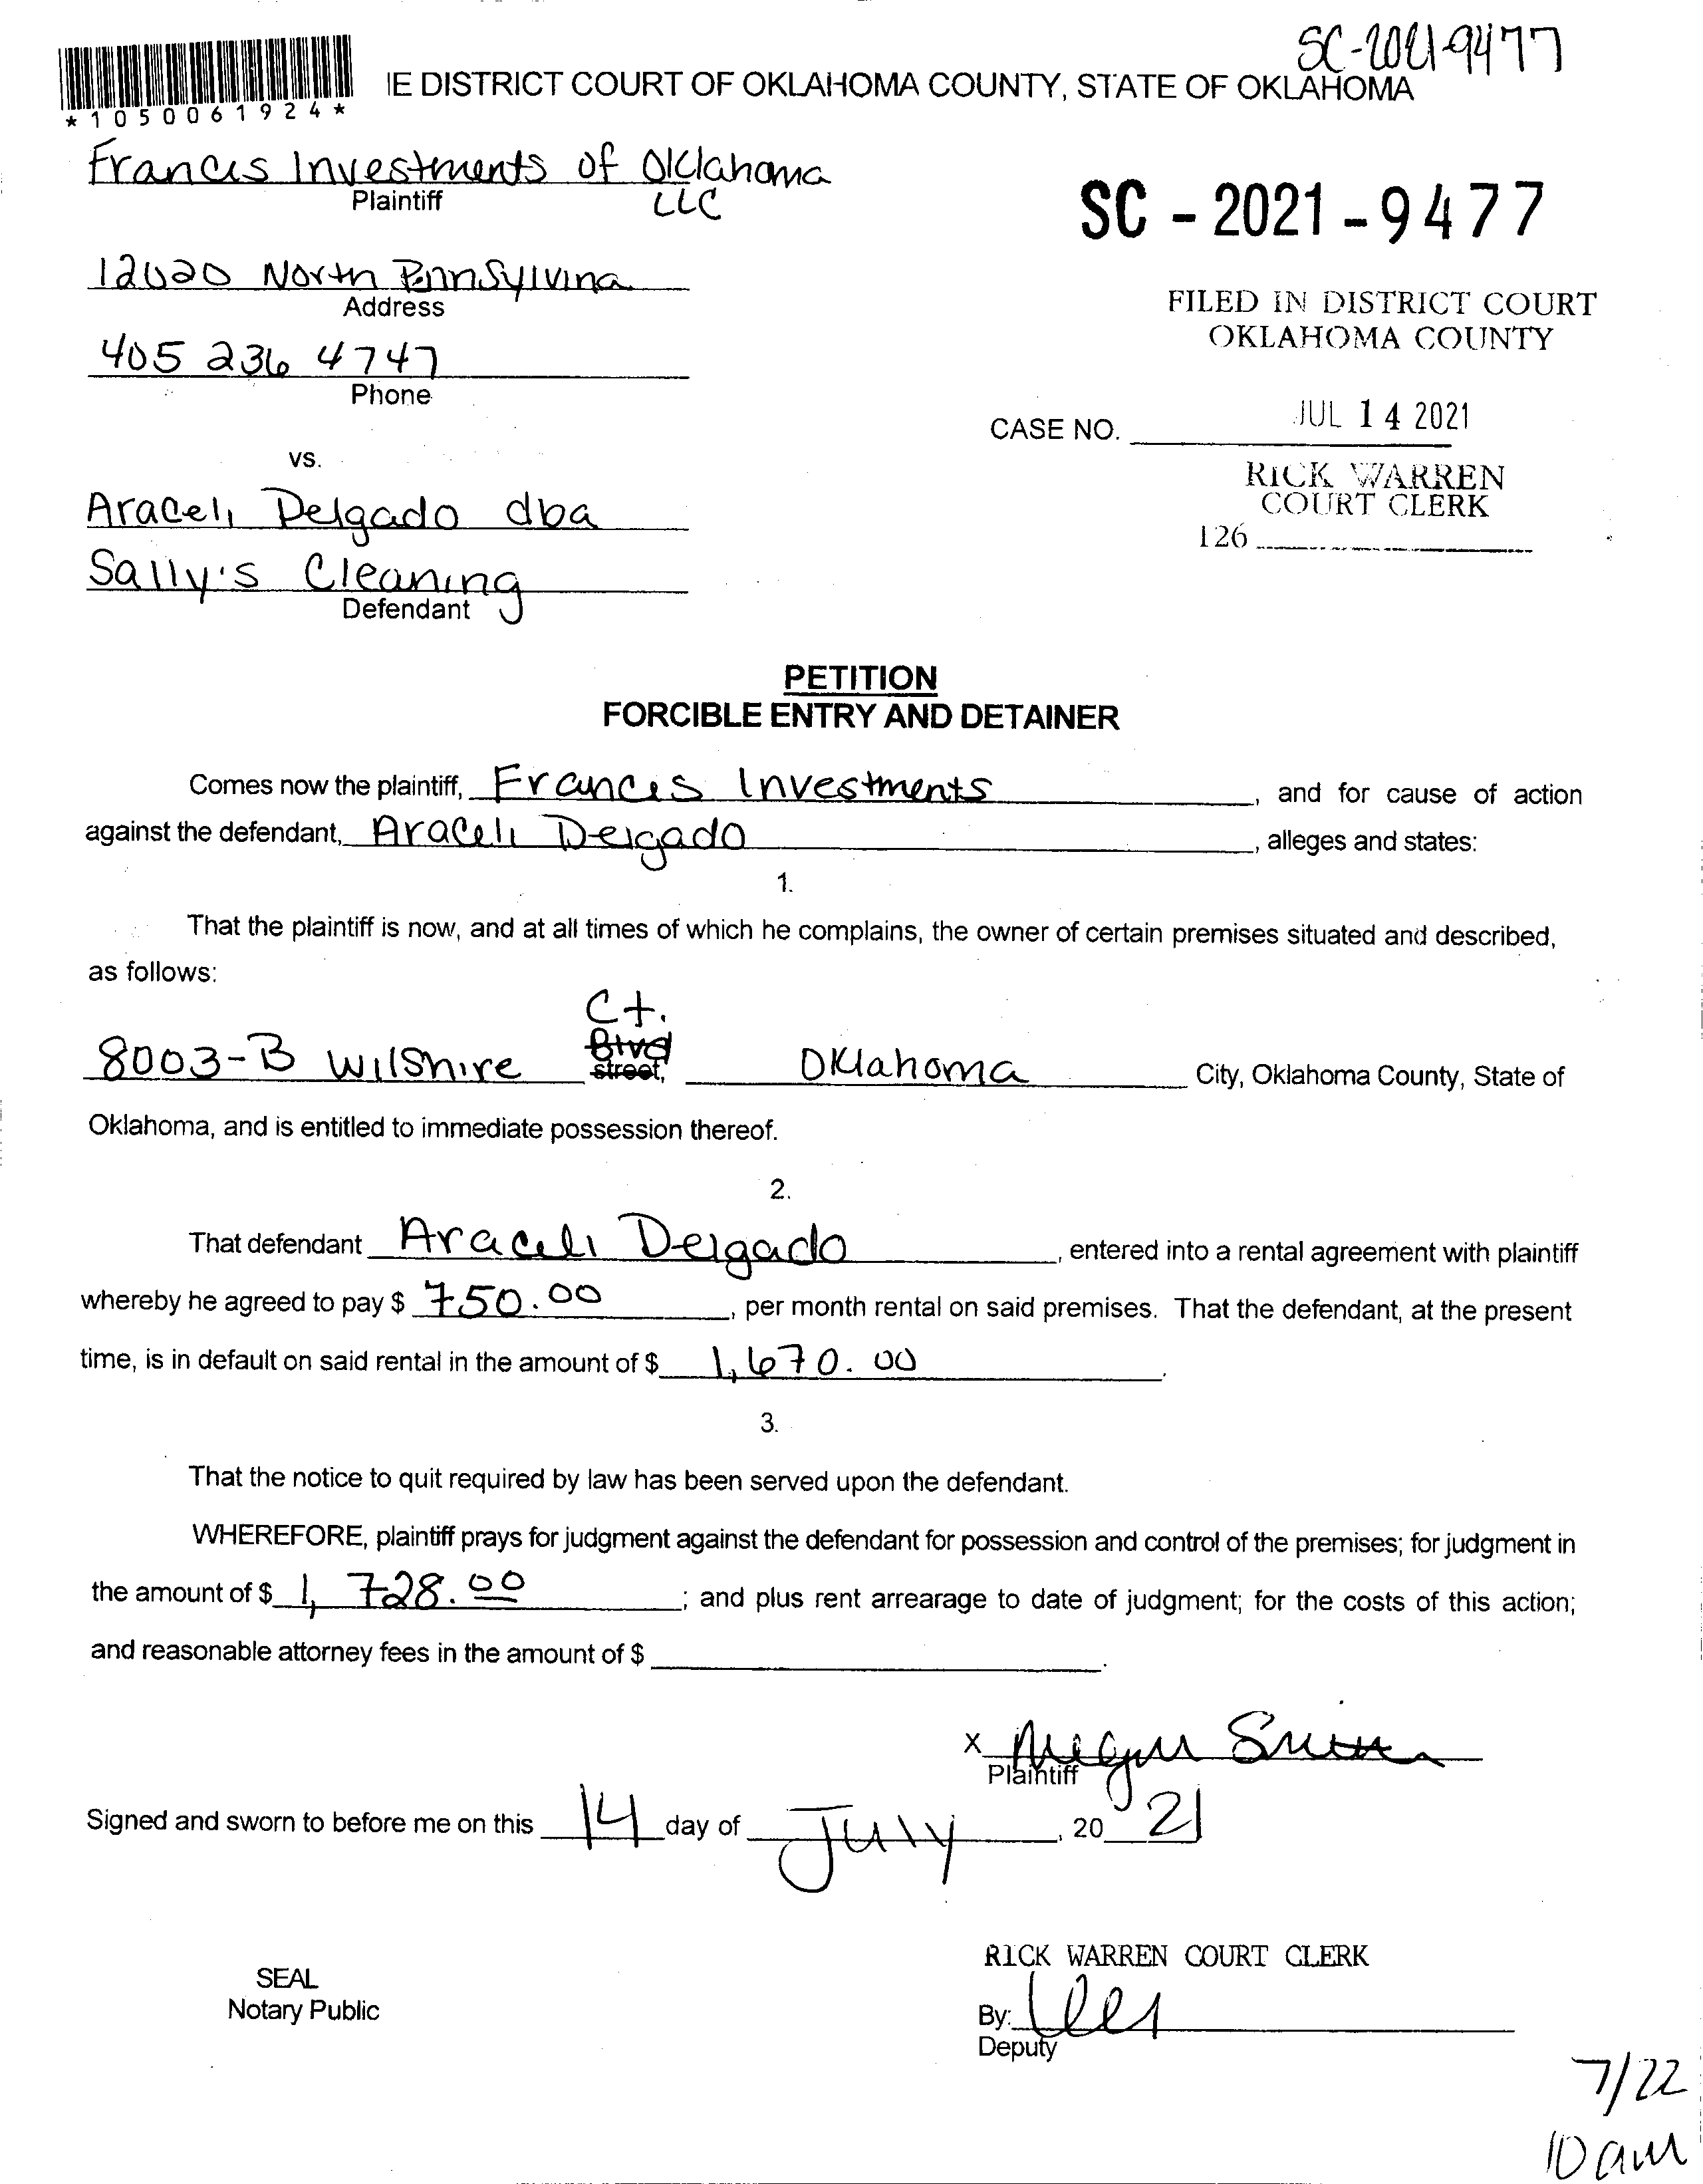 SC-2021-9477
IE DISTRICT COURT OF OKLAHOMA COUNTY, STATE OF OKLAHOMA
*1050061924*
Francis Investments of Oklahoma
Plaintiff LLC
SC - 2021 - 9477
12020 North Pennsylvina
Address
FILED IN DISTRICT COURT
OKLAHOMA COUNTY
405 236 4747
Phone
JUL 14 2021
CASE NO.
vs.
RICK WARREN
COURT CLERK
126
Araceli Delgado dba
Sally's Cleaning
Defendant
PETITION
FORCIBLE ENTRY AND DETAINER
Comes now the plaintiff, Francis Investments, and for cause of action
against the defendant, Araceli Delgado, alleges and states:
1.
That the plaintiff is now, and at all times of which he complains, the owner of certain premises situated and described,
as follows:
Ct.
Blvd
8003-B Wilshire street, Oklahoma City, Oklahoma County, State of
Oklahoma, and is entitled to immediate possession thereof.
2.
That defendant Araceli Delgado, entered into a rental agreement with plaintiff
whereby he agreed to pay $ 750.00, per month rental on said premises. That the defendant, at the present
time, is in default on said rental in the amount of $ 1,670.00.
3.
That the notice to quit required by law has been served upon the defendant.
WHEREFORE, plaintiff prays for judgment against the defendant for possession and control of the premises; for judgment in
the amount of $ 1,728.00; and plus rent arrearage to date of judgment; for the costs of this action;
and reasonable attorney fees in the amount of $ .
x Megan Smith
Plaintiff
Signed and sworn to before me on this 14 day of July, 20 21
RICK WARREN COURT CLERK
SEAL
Notary Public
By:
Deputy
7/22
10 am